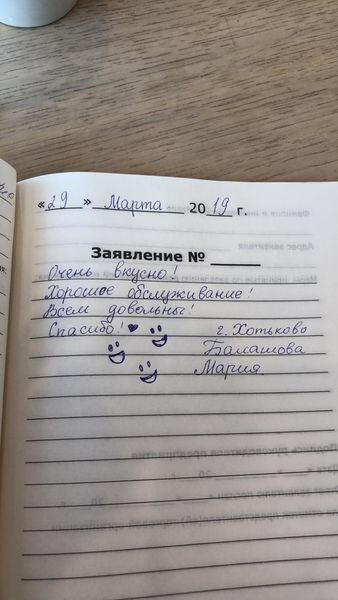 «29» Марта 2019 г.
Заявление №
Очень вкусно!
Хорошее обслуживание!
Всем довольны!
Спасибо! ♥ г. Хотьково
Балашова
Мария.